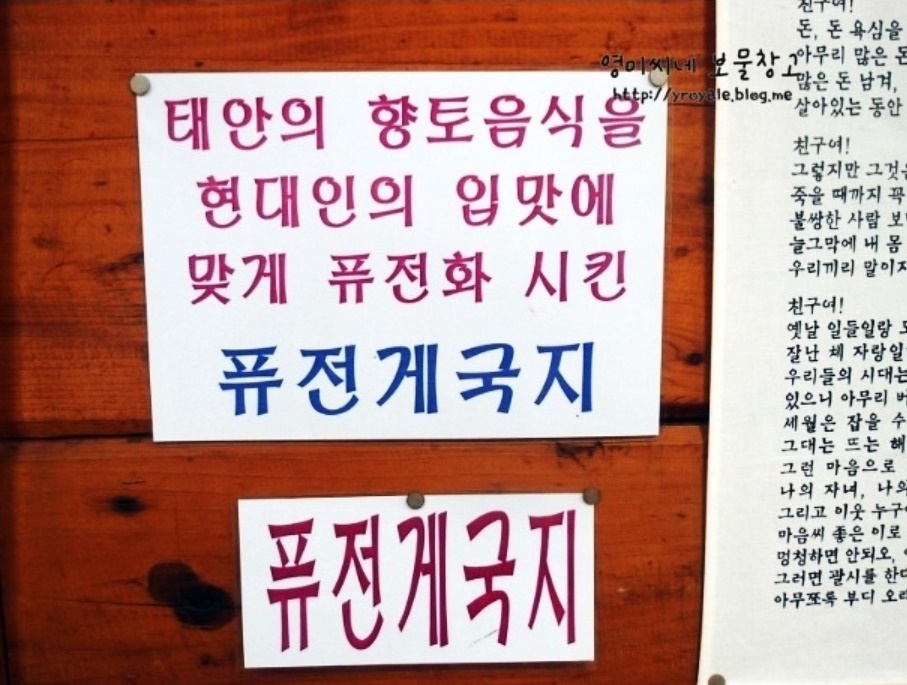 태안의 향토음식을
현대인의 입맛에
맞게 퓨전화 시킨
퓨전게국지
퓨전게국지
영미씨네 보물창고
http://yroyale.blog.me
친구여!
돈, 돈 욕심을
아무리 많은 돈
많은 돈 남겨,
살아있는 동안
친구여!
그렇지만 그것은
죽을 때까지 꼭
불쌍한 사람 보
늘그막에 내 몸
우리끼리 말이지
친구여!
옛날 일들일랑 모
잘난 체 자랑일
우리들의 시대는
있으니 아무리 버
세월은 잡을 수
그대는 뜨는 해
그런 마음으로
나의 자녀, 나의
그리고 이웃 누구
마음씨 좋은 이로
멍청하면 안되오,
그러면 괄시를 한다
아무쪼록 부디 오래